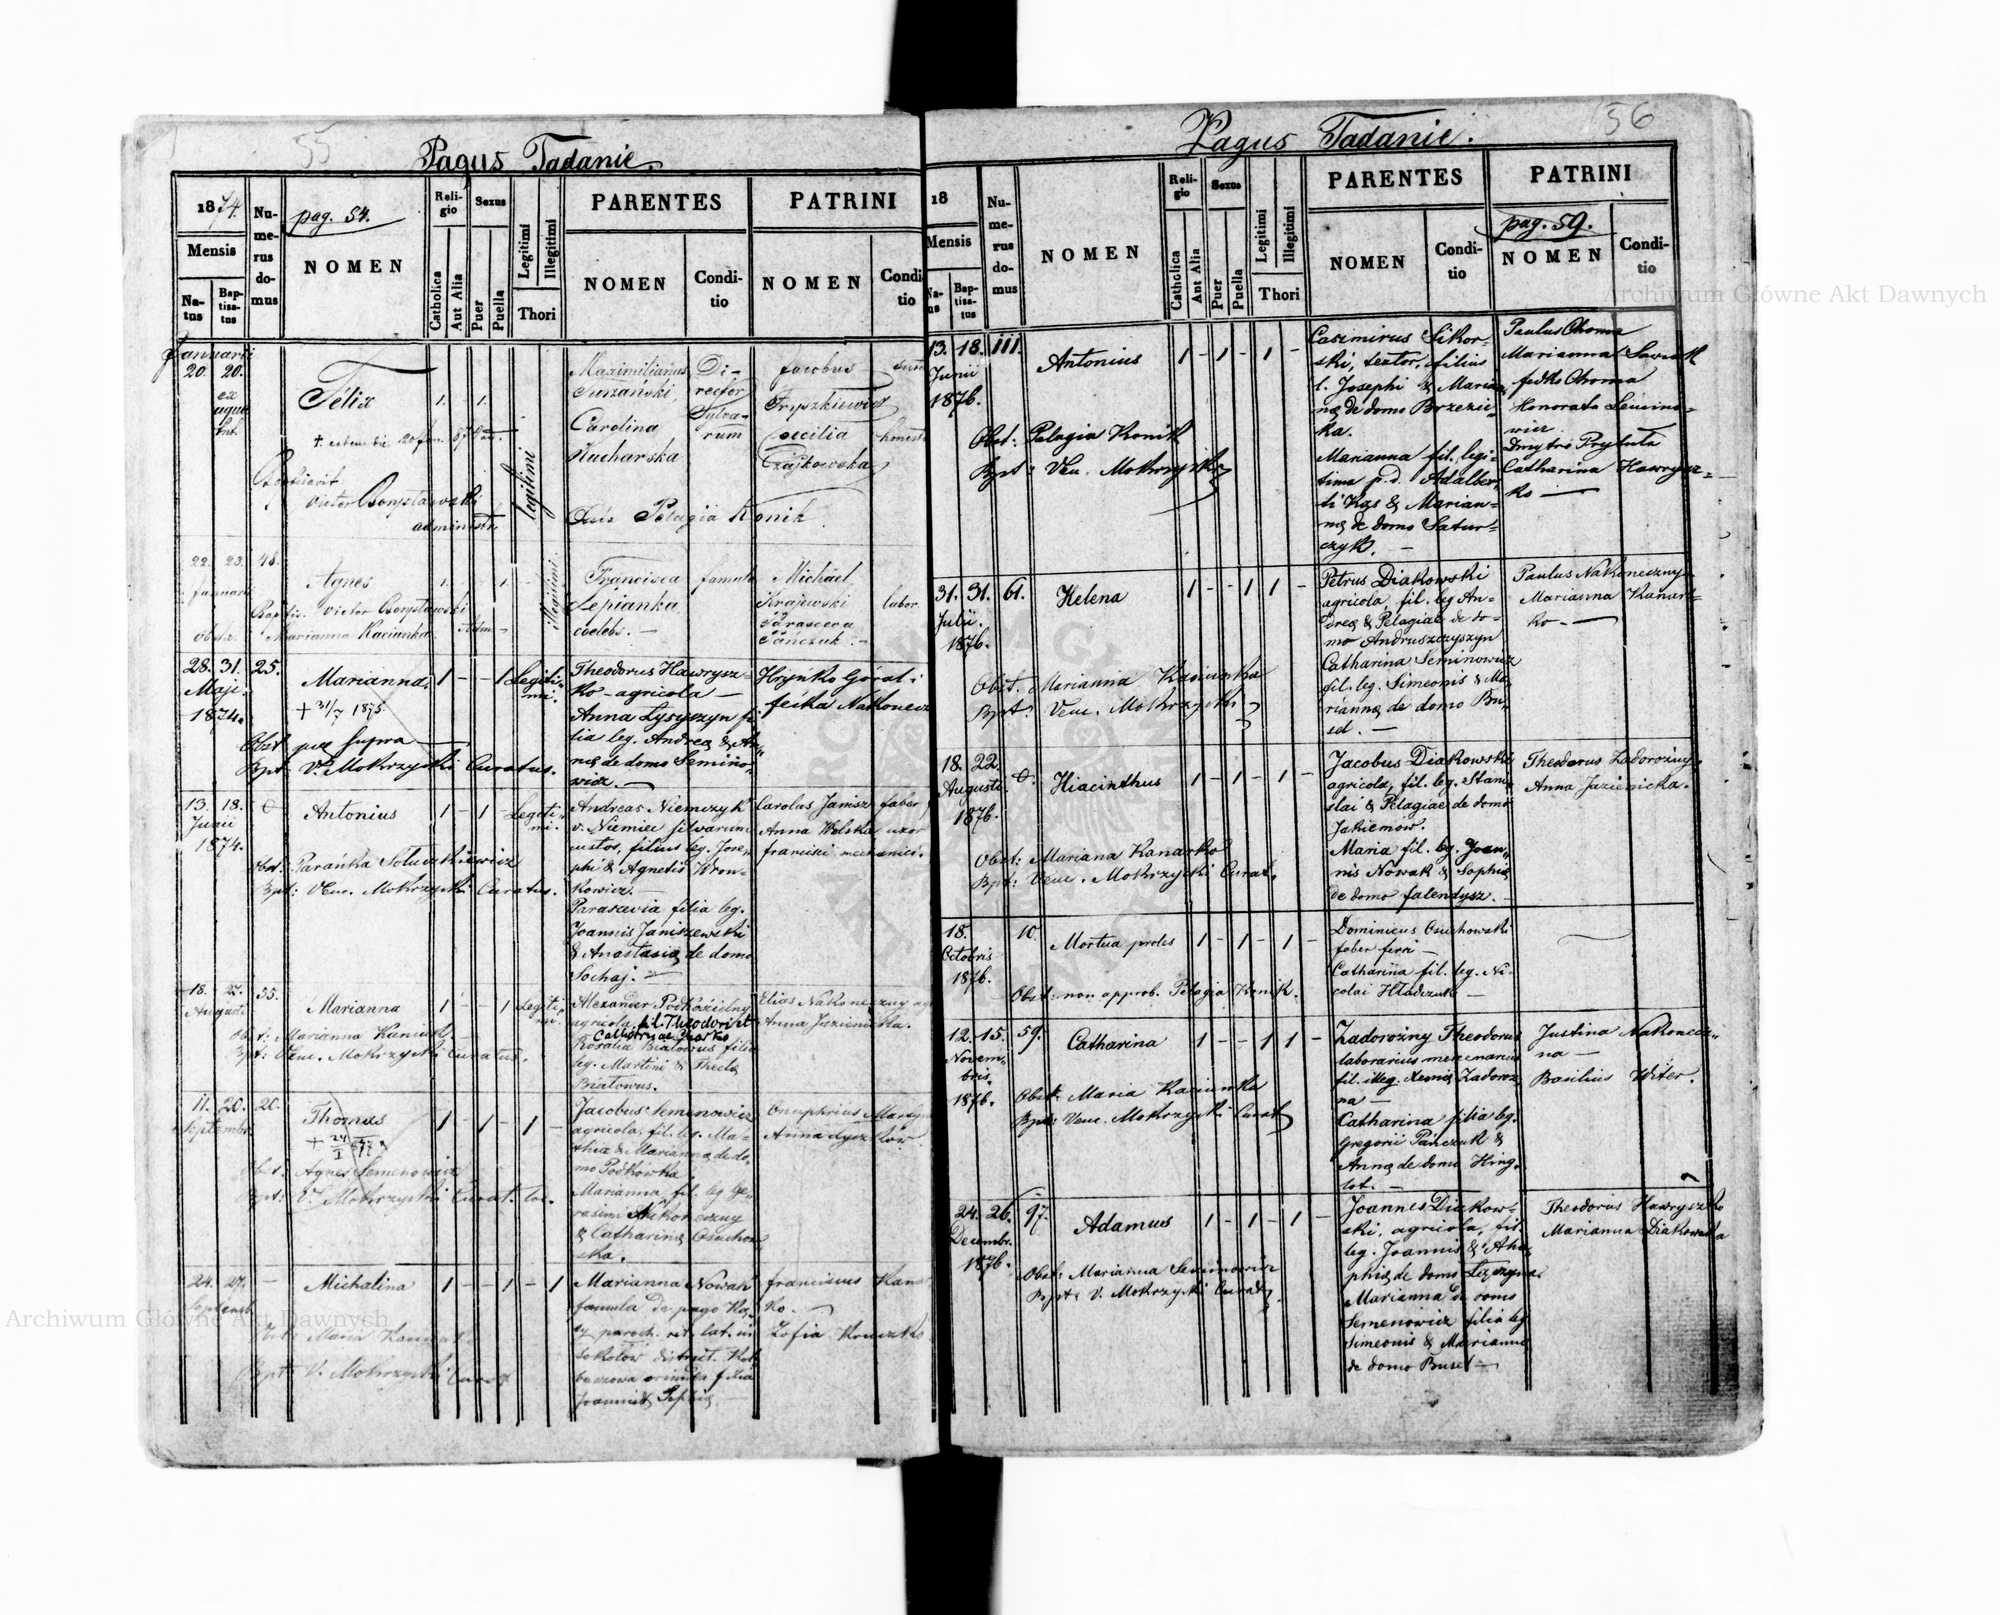 55
Pagus Tadanie.
1874.
Numerus domus
pag. 54.
Religio
Sexus
Legitimi
Illegitimi
PARENTES
PATRINI
Mensis
NOMEN
Catholica
Aut Alia
Puer
Puella
NOMEN
Conditio
NOMEN
Conditio
Natus
Baptisatus
Thori
Januarii
20. 20.
ex aqua
Felix
1. - 1.
legitimi
Maximilianus
Carolina
Kucharska
Director
Sylvarum
Jacobus
Coecilia
Czajkowska
Victor
administr.
Pelagia Konik
22. 23. 48.
Januarii
Agnes
1. 1
Illegitimi
Francisca
Lepianka
coelebs. —
famula
Michael
Krajewski
labor.
Parascera
Pańczuk. —
Victor
Marianna Kacianka.
28. 31. 25.
Maji
1874.
Marianna.
+ 31/7 1875.
1 - - 1
Legitimi.
Theodorus Hawryszko - agricola —
Anna Lysyszyn filia leg. Andreę & Annę de domo Seminowicz. —
Hryńko Góral.
fećka Nakonecz
Obst. quę supra —
Bpt: V. Mokrzycki Curatus.
13. 18. 0
Junii
1874.
Antonius
1 - 1 -
Legitimi.
Andreas Niemczyk
v. Niemiec silvarum
custos, filius leg. Josephi & Agnetis Wronkowicz. —
Parascevia filia leg.
Joannis Janiszewski
& Anastasię de domo
Sochaj. —
Carolus Janisz faber
Anna Wolska uxor
francisci mechanici.
Obst: Parańka
Bpt: Venc. Mokrzycki Curatus.
18. 22. 55.
Augusti
Marianna
1 - - 1
Legitimi.
Alexander
agricola, fil. Theodori et
Rosalia Białowus filia
leg. Martini & Theclę
Białowus.
Elias Nakoneczny
Anna Jazienicka.
Obst: Marianna
Bpt: Venc. Mokrzycki Curatus.
11. 20. 20.
Septembr.
Thomas
1 - 1 - 1 -
Jacobus Semenowicz
agricola. fil. leg. Mathiæ & Mariannę de domo Podkowka
Marianna fil. leg. Gerasimi Nakoneczny
& Catharinę Osuchowska.
Onuphrius Martyn
Anna
Obst: Agnes Semenowicz
Bpt: V. Mokrzycki Curat. loc.
24. 27. —
Septemb.
Michalina
1 - - 1 - 1
Marianna Nowak
famula de pago
paroch. rit. lat. in
Sokołów district.
oriunda filia
Joannis & Sophię
franciscus
Zofia Kruczko
Obst: Maria
Bpt: V. Mokrzycki Curat
56
Pagus Tadanie.
18
Numerus domus
Religio
Sexus
Legitimi
Illegitimi
PARENTES
PATRINI
pag. 59.
Mensis
NOMEN
Catholica
Aut Alia
Puer
Puella
NOMEN
Conditio
NOMEN
Conditio
Natus
Baptisatus
Thori
13. 18. 111.
Junii
1876.
Antonius
1 - 1 - 1 -
Casimirus Sikorski, textor, filius
l. Josephi & Mariannę de domo Brzezicka.
Marianna fil. legitima p. d. Adalberti Kęs & Mariannę de domo Saturczyk. —
Paulus Choma
Marianna
fedko Choma
Honorata
Dmytro Prytuła
Catharina Hawryszko —
Obst: Pelagia Konik
Bpt: Ven. Mokrzycki
31. 31. 61.
Julii.
1876.
Helena
1 - - 1 1 -
Petrus Diakowski
agricola, fil. leg Andreę & Pelagiæ de domo Andruszczyszyn
Catharina Seminowicz
fil. leg. Simeonis & Mariannę de domo Bused. —
Paulus Nakoneczny
Marianna Kanarko. —
Obst. Marianna Kaniuka
Bpt: Venc. Mokrzycki
18. 22. 0.
Augusti
1876.
Hiacinthus
1 - 1 - 1 -
Jacobus Diakowski
agricola, fil. leg. Stanislai & Pelagiae de domo
Jakiemow.
Maria fil. leg. Joannis Nowak & Sophię
de domo falendysz. —
Theodorus Zadorożny.
Anna Jazienicka.
Obst: Mariana Kanarko
Bpt: Venc. Mokrzycki Curat.
18. 10.
Octobris
1876.
Mortua proles
1 - 1 - 1 -
Dominicus Osuchowski
faber ferri —
Catharina fil. leg. Nicolai Hładczuk —
Obst: non approb. Pelagia Konik.
12. 15. 59.
Novembris.
1876.
Catharina
1 - - 1 1 -
Zadorożny Theodorus
laborarius mercenarius
fil. illeg. Xenię Zadorożna —
Catharina filia leg.
Gregorii Pańczuk &
Annę de domo
Justina Nakoneczna —
Basilius Witer.
Obst: Maria Kaniuka
Bpt: Venc. Mokrzycki Curat
24. 26. 97.
Decembr.
1876.
Adamus
1 - 1 - 1 -
Joannes Diakowski, agricola, fil.
leg. Joannis & Ahaphię de domo
Marianna de domo
Semenowicz filia leg
Simeonis & Marianna
de domo Bused —
Theodorus Hawryszko
Marianna Diakowska
Obst: Marianna Seminowicz
Bpt: V. Mokrzycki Curat
Archiwum Główne Akt Dawnych
Archiwum Główne Akt Dawnych